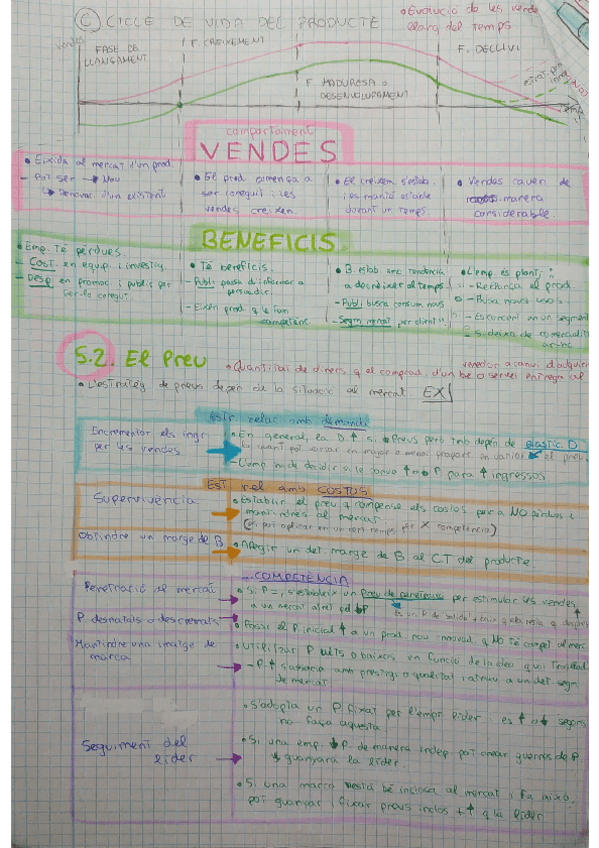 C) CICLE DE VIDA DEL PRODUCTE
• Evolució de les vende
llarg del temps
Vendes
FASE DE
LLANÇAMENT
F. CREIXEMENT
F. MADURESA o
DESENVOLUPAMENT
F. DECLIVI
comportament
VENDES
• Eixida al mercat d'un prod.
- Pot ser → Nou
↳ Renovar d'un existent
• El prod. comença a
ser conegut i les
vendes creixen.
• El creixem. s'estab.
i es manté estable
durant un temps.
• Vendes cauen de
manera
considerable.
BENEFICIS
• Emp. Té pèrdues.
- Cost. en equip. i investig.
- Desp. en promoc. i public per
fer-lo conegut.
• Té beneficis.
- Publi passa d'informar a
persuadir.
- Eixen prod. q le fan
competènc.
• B. estab. amb tendència
a decréixer al temps.
- Publi busca consum nous
- Segm mercat per client
• L'emp es planti:
- Rellança el prod.
- Busca nous usos.
- Es concent en un segment
- Si deixa de comercialit
ar-ho.
5.2. El Preu
• Quantitat de diners q al comprad. d'un be o servei entrega al
venedor a canvi d'adquirir
• L'estratèg de preus depén de la situació al mercat. EX
Estr. relac amb demanda
Incrementar els ingr
per les vendes
• En general, la D ↑ si ↓ Preus però tmb depén de elastic D.
- L'emp ha de decidir si le convé ↑ o ↓ P para ↑ ingressos
EST rel amb COSTOS
Supervivència
• Establir el preu q compense els costos per a NO pèrdues i
mantindre's al mercat
Obtindre un marge de B
• Afegir un det. marge de B al CT del producte.
... COMPETÈNCIA
Penetració al mercat
• Si P =, s'estableix un Preu de penetració per estimular les vendes
a un mercat
P. desnatats o descremats
• Fixar el P inicial ↑ a un prod. nou i innovad. q NO té compet al merc
Mantindre una imatge de
marca
• Utilitzar P alts o baixos en funció de la idea
- P. ↑ s'associa amb prestigi o qualitat i atreu a un det segm
de mercat
Seguiment del
líder
• S'adopta un P. fixat per l'empr líder i es ↑ o ↓ segons
ho faça aquesta
• Si una emp. ↓ P de manera indep. pot crear guerres de P
i guanyarà la líder.
• Si una marca està bé inclosa al mercat i fa això,
pot guanyar i fixar preus inclos + ↑ q la líder